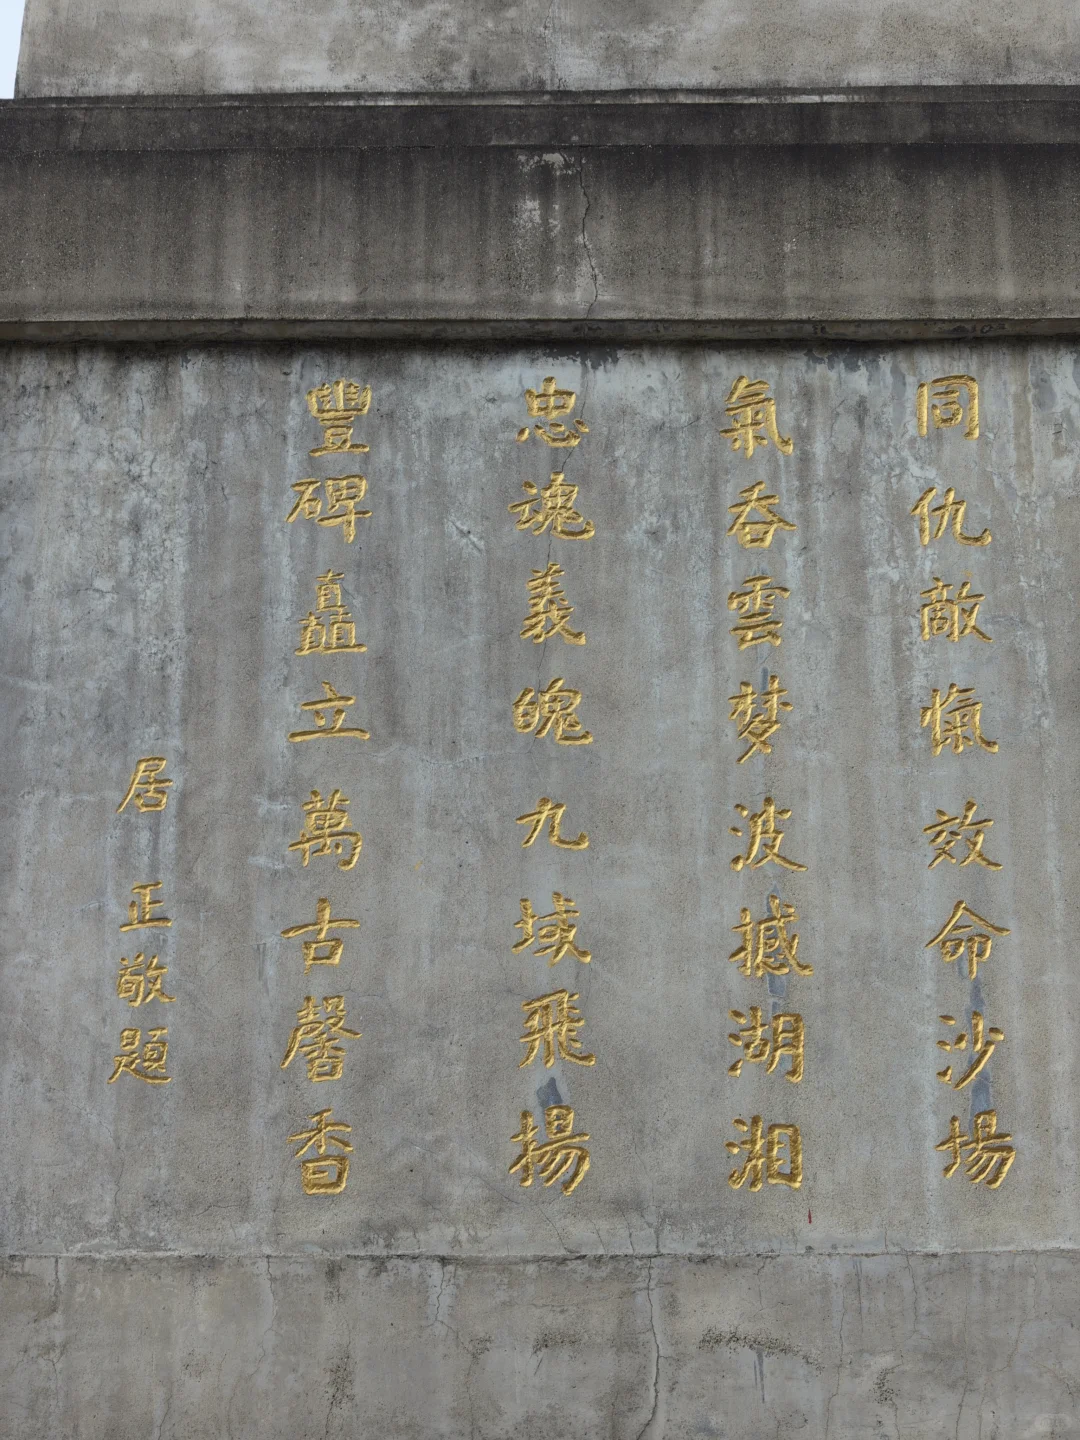 同仇敵愾效命沙場
氣吞雲夢波撼湖湘
忠魂義魄九域飛揚
豐碑矗立萬古馨香
居正敬題